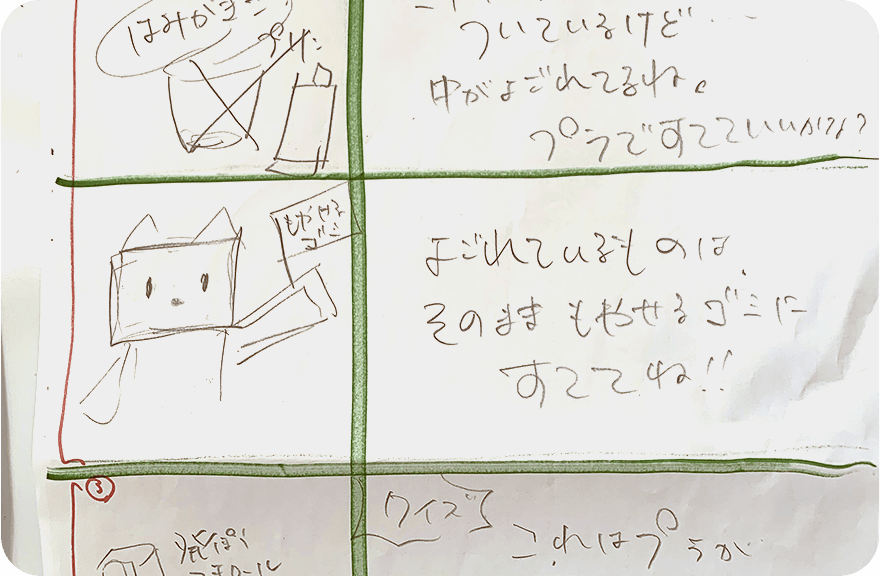 はみがきこ
プリン
ついているけど…
中がよごれてるね。
プラですてていいかな？
もやせる
ゴミ
よごれているものは、
そのままもやせるゴミに
すててね!!
③
クイズ
これはプラか
発ぽう
スチロール